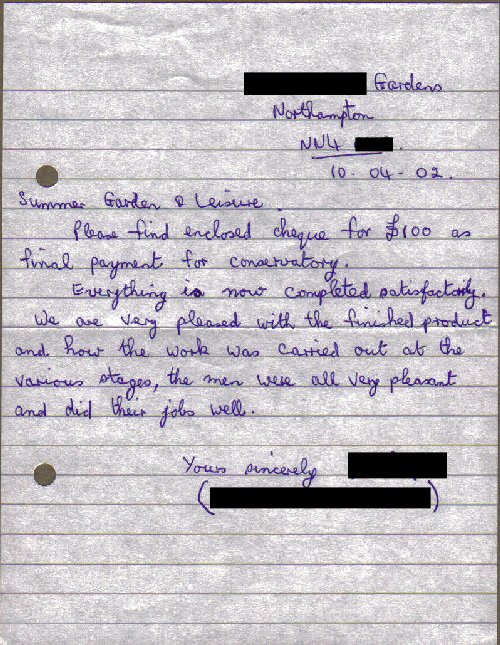 Gardens
Northampton
NN4
10.04.02.
Summer Garden & Leisure.
Please find enclosed cheque for £100 as
final payment for conservatory.
Everything is now completed satisfactorily.
We are very pleased with the finished product
and how the work was carried out at the
various stages, the men were all very pleasant
and did their jobs well.
Yours sincerely